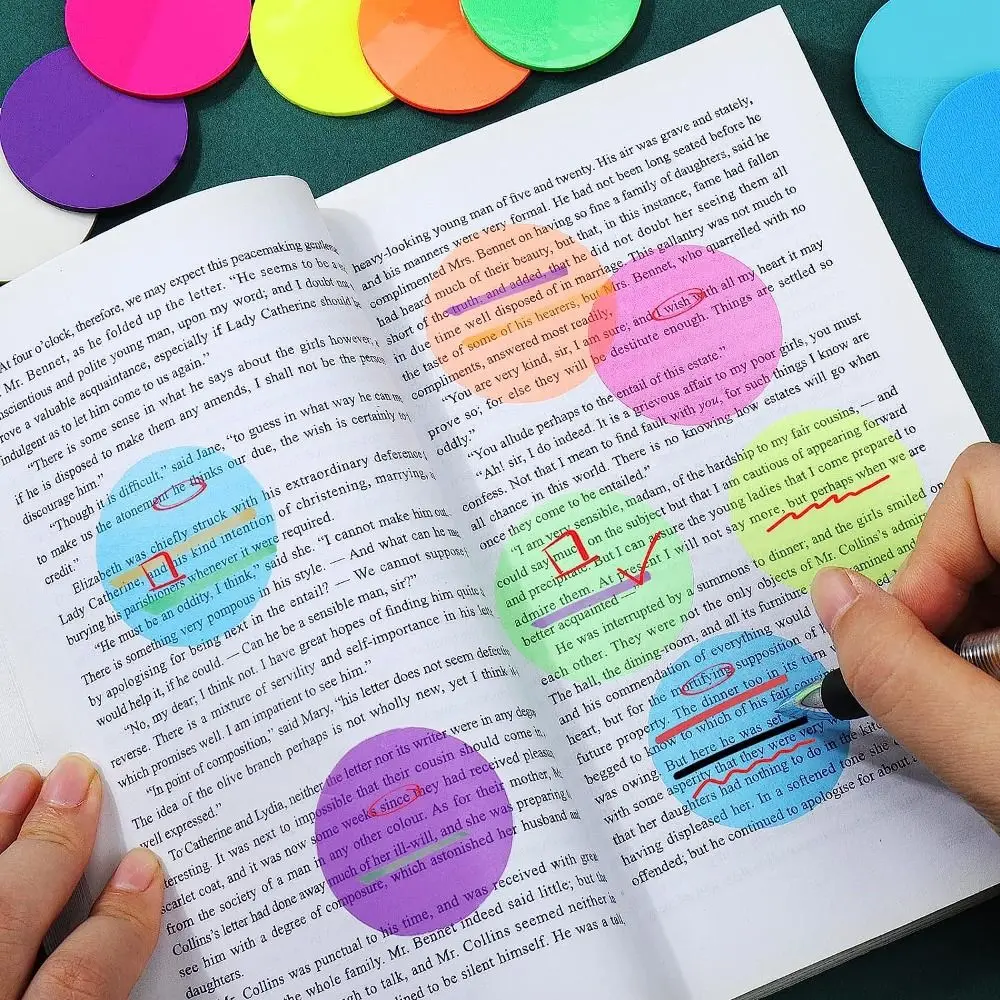 At four o'clock, therefore, we may expect this peacemaking
Mr. Bennet, as he folded up the letter. "He seems to be a
scientious and polite young man, upon my word; and I doubt
rove a valuable acquaintance, especially if Lady Catherine should be
indulgent as to let him come to us again."
"There is some sense in what he says about the girls however,
if he is disposed to make them any amends, I shall not be the
discourage him."
"Though it is difficult," said Jane, "to guess in what way he can
to make us the atonement he thinks our due, the wish is certainly
credit."
Elizabeth was chiefly struck with his extraordinary deference
Lady Catherine, and his kind intention of christening, marrying,
burying his parishioners whenever it were required.
"He must be an oddity, I think," said she. "I cannot make him out.
There is something very pompous in his style. — And what can he
by apologising for being next in the entail? — We cannot suppose
would help it, if he could. — Can he be a sensible man, sir?"
"No, my dear, I think not. I have great hopes of finding him quite
reverse. There is a mixture of servility and self-importance in his
which promises well. I am impatient to see him."
"In point of composition," said Mary, "his letter does not seem
The idea of the olive branch perhaps is not wholly new, yet I think
well expressed."
To Catherine and Lydia, neither the letter nor its writer were in any
teresting. It was next to impossible that their cousin should come in
scarlet coat, and it was now some weeks since they had received
from the society of a man in any other colour. As for their mother,
Collins's letter had done away much of her ill-will, and she was preparing
see him with a degree of composure, which astonished her husband and
daughters.
Mr. Collins was punctual to his time, and was received with
the whole family. Mr. Bennet indeed said little; but the
to talk, and Mr. Collins seemed neither
to be silent himself. He was a tall,
heavy-looking young man of five and twenty. His air was grave and stately,
and his manners were very formal. He had not been long seated before he
complimented Mrs. Bennet on having so fine a family of daughters, said he
had heard much of their beauty, but that, in this instance, fame had fallen
short of the truth; and added, that he did not doubt her seeing them all
in due time well disposed of in marriage. This gallantry was not much to
the taste of some of his hearers, but Mrs. Bennet, who quarrelled with no
compliments, answered most readily,
"You are very kind, sir, I am sure; and I wish with all my heart it may
prove so; for else they will be destitute enough. Things are settled so
oddly."
"You allude perhaps to the entail of this estate."
"Ah! sir, I do indeed. It is a grievous affair to my poor girls, you must
confess. Not that I mean to find fault with you, for such things I know are
all chance in this world. There is no knowing how estates will go when
once they come to be entailed."
"I am very sensible, madam, of the hardship to my fair cousins, — and
could say much on the subject but that I am cautious of appearing forward
and precipitate. But I can assure the young ladies that I come prepared to
admire them. At present I will not say more, but perhaps when we are
better acquainted —"
He was interrupted by a summons to dinner; and the girls smiled on
each other. They were not the only objects of Mr. Collins's
The hall, the dining-room, and all its furniture were examined and
and his commendation of everything would
heart, but for the mortifying supposition of
future property. The dinner too in its turn
begged to know to which of his fair
was owing. But here he was set
with some asperity that they were very
that her daughters had nothing to do in the
having displeased her. In a softened tone she
offended; but he continued to apologise for about